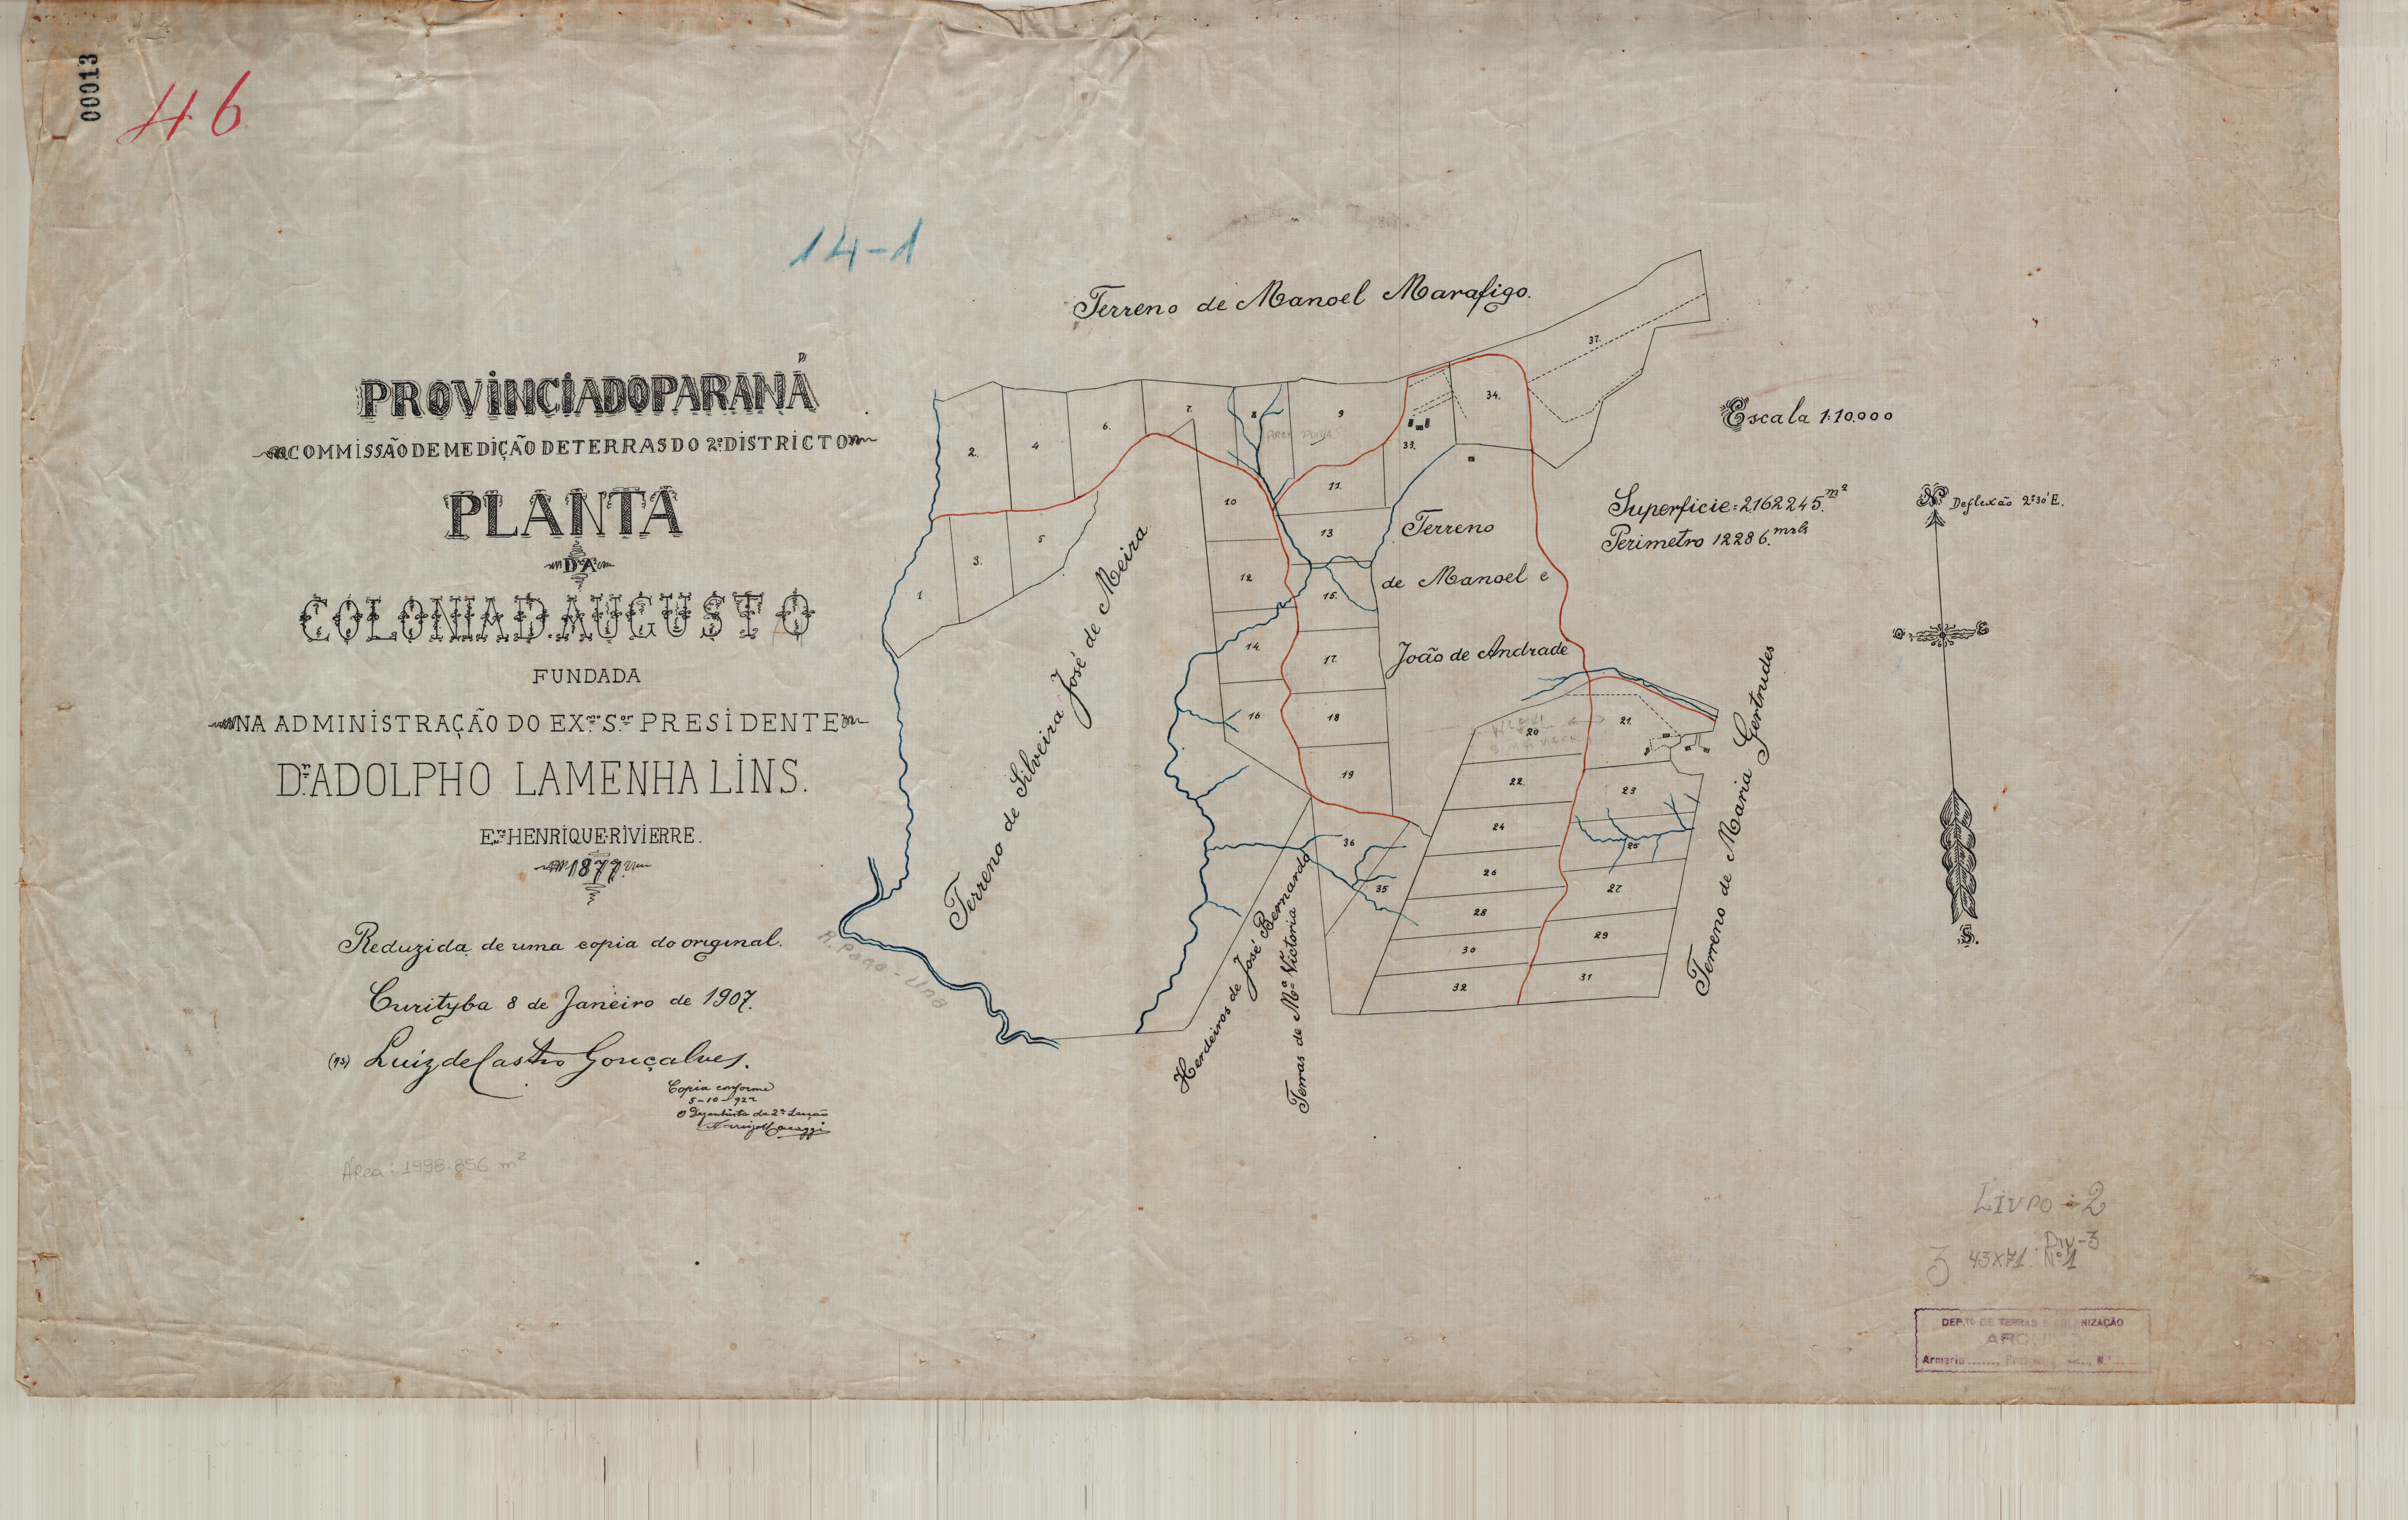 00013
46
14-1
PROVINCIA DO PARANÁ
COMMISSÃO DE MEDIÇÃO DE TERRAS DO 2º DISTRICTO
PLANTA
DA
COLONIA D. AUGUSTO
FUNDADA
NA ADMINISTRAÇÃO DO EXmo Sor PRESIDENTE
Dr. ADOLPHO LAMENHA LINS.
HENRIQUE RIVIERRE.
Reduzida de uma copia do original.
Curityba 8 de Janeiro de 1907.
Luiz de Castro Gonçalves.
Copia conforme
5-10-922
O Dezenhista da 2ª Secção
Área: 1998.856 m²
Terreno de Manoel Marafigo.
Escala 1:10.000
Superficie = 2162245. m²
Perimetro 12286. mets
N
Deflexão 2º30' E.
O E
S.
Terreno
de Manoel e
João de Andrade
Terreno de Silveira José de Meira
Herdeiros de José Bernardo
Terras de Mª Victoria
Terreno de Maria Gertrudes
R. Passa-Una
1
2.
3.
4
5
6.
7.
8
9
10
11.
12
13
14.
15.
16
17.
18
19
20
21.
22.
23
24
25
26
27
28
29
30
31
32
33.
34.
35
36
37.
Livro - 2
Div-3
3 43x71. Nº1
DEP.TO DE TERRAS E COLONIZAÇÃO
Armario